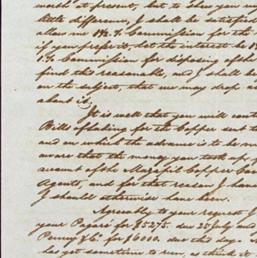 worth at present, but to show you
little difference, I shall be satisfied
allow me 1½ % Commission for the
if you prefer it, let the interest be
1 % Commission for disposing of the
find this reasonable, and I shall be
on the subject, that we may drop
about it.
It is well that you will
Bills of lading for the Copper sent to
and on which the advance is to be
aware that the money you took up
account of the Copper
Agents, and for that reason I have
I should otherwise have been.
Agreeably to your request I
your Pagaré for $5275. due 25 July and
Penny & Co for $6000. due this day.
has got sometime to run,